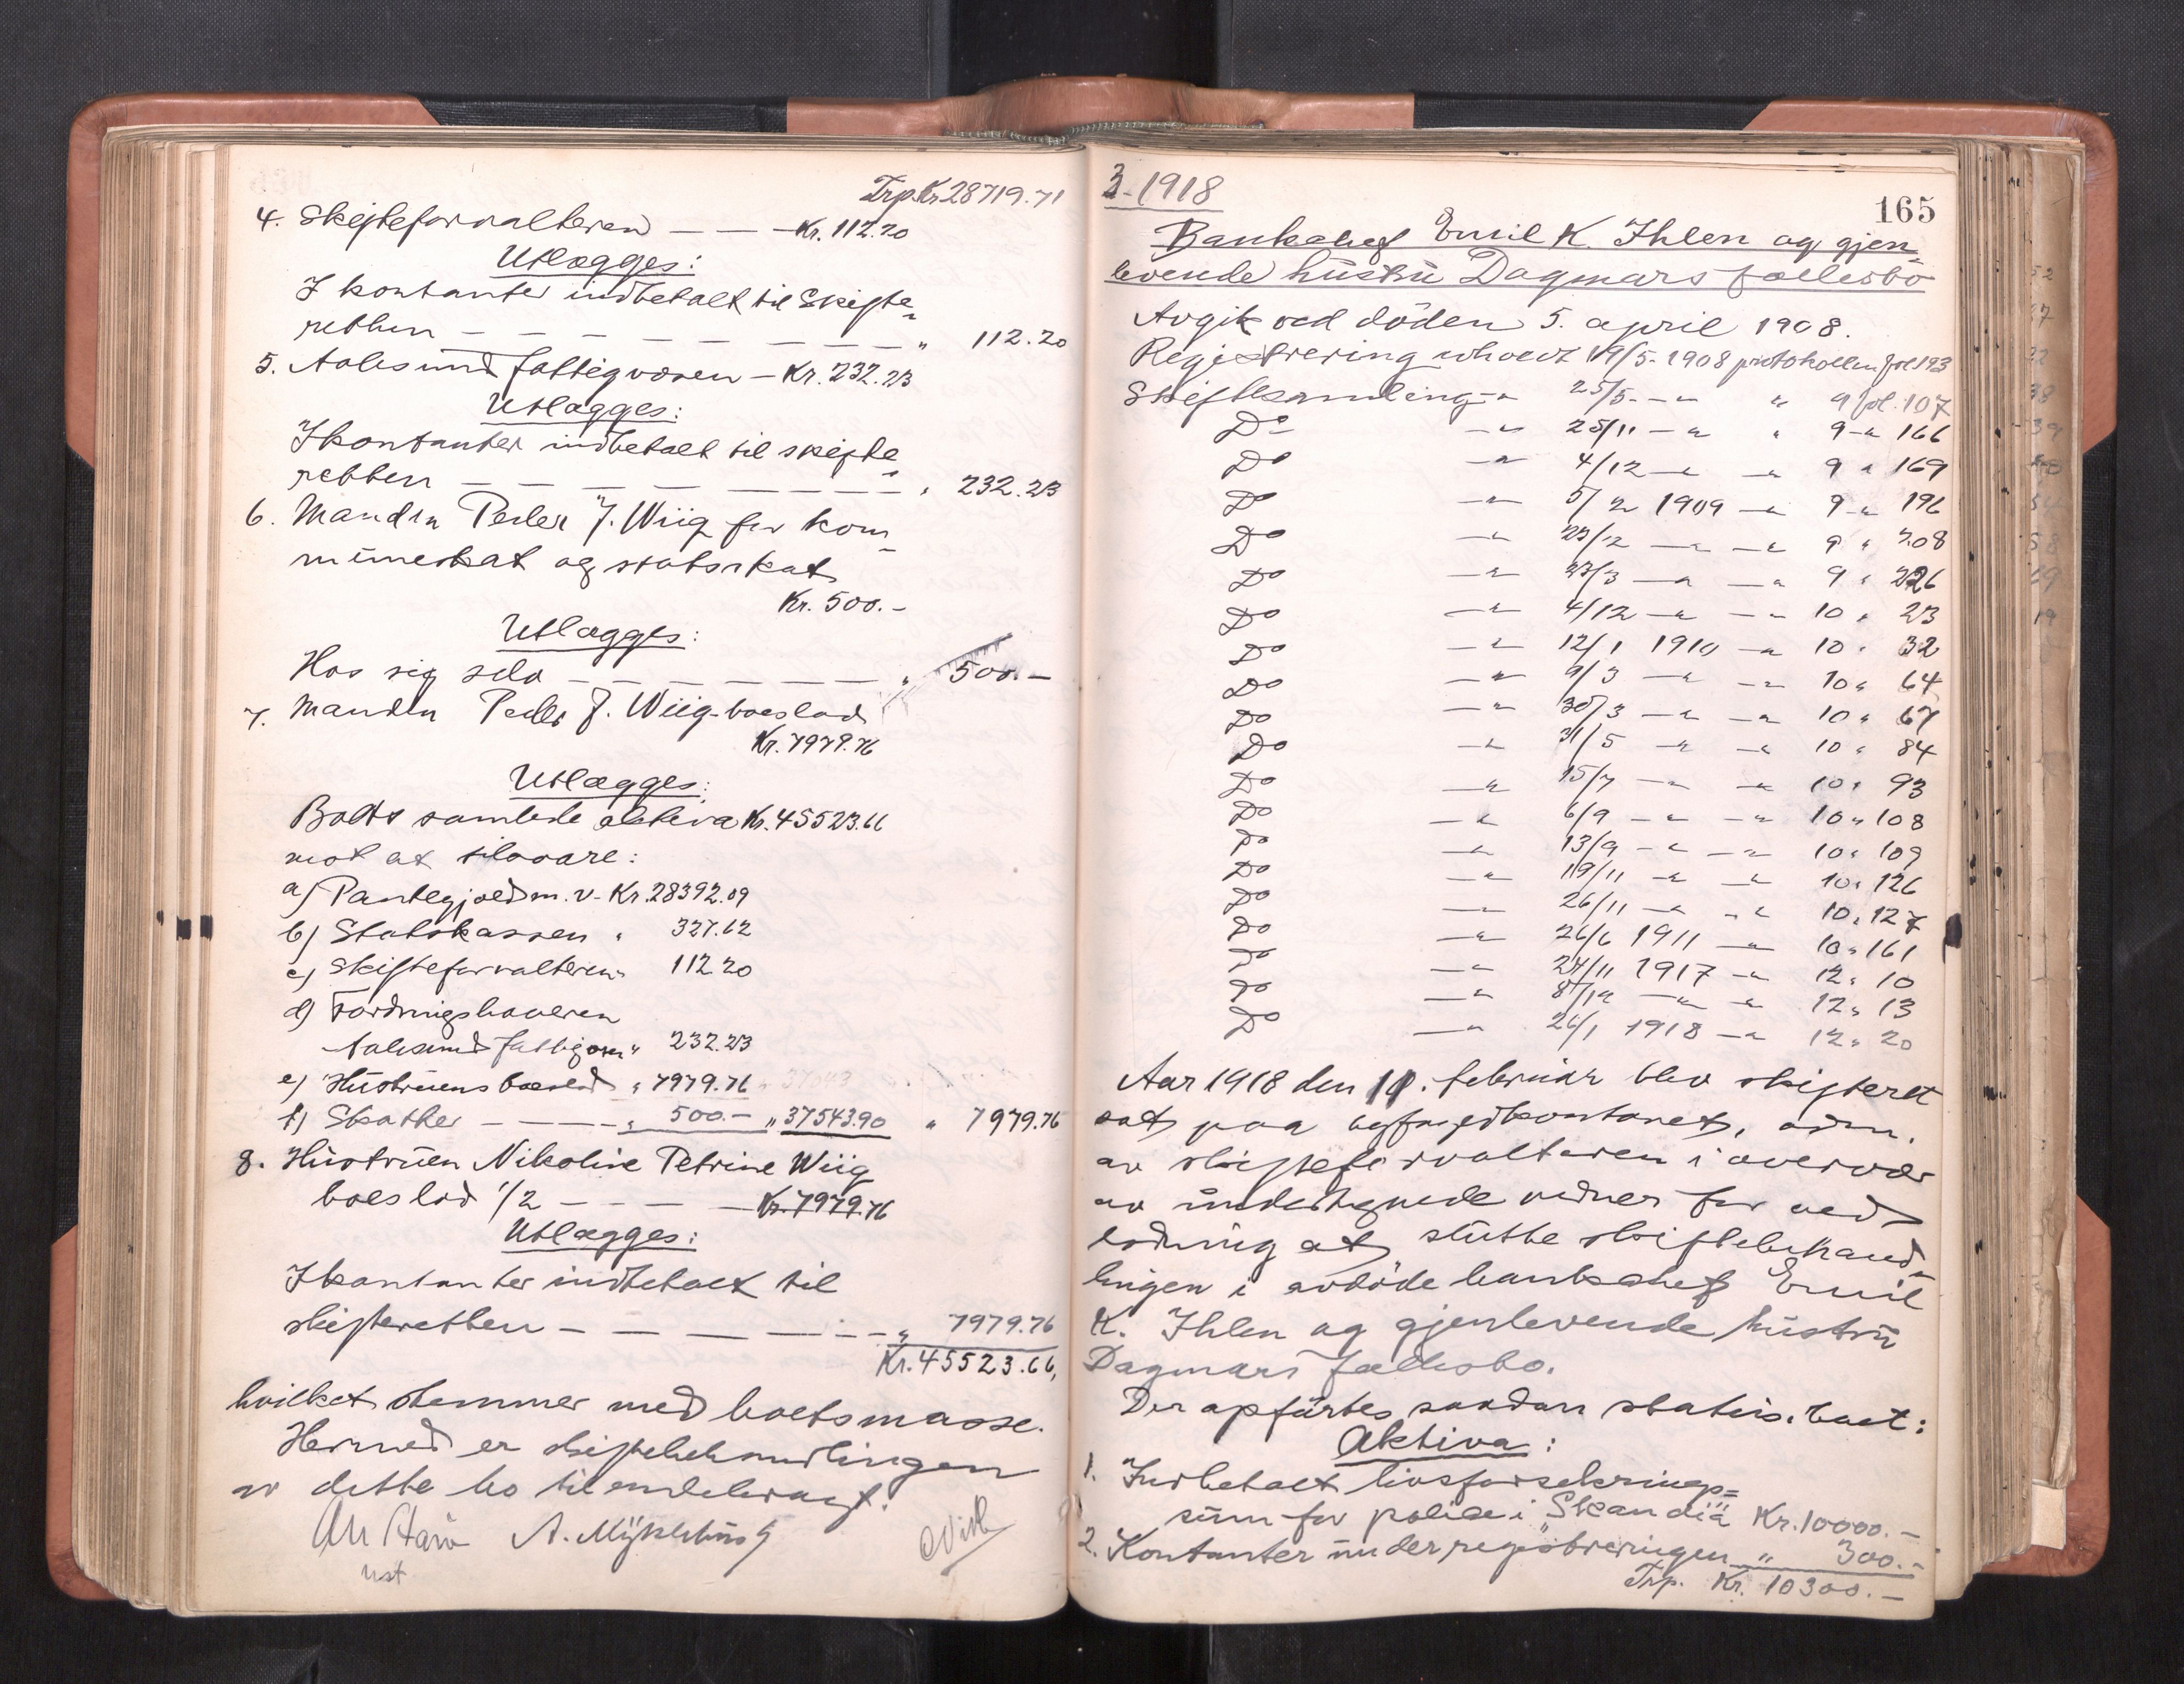 Trp. Kr. 28719.71
4. Skifteforvalteren — — — Kr. 112.20
Utlægges:
I kontanter indbetalt til Skifte-
retten — — — — — — — " 112.20
5. Aalesund fattigvæsen — Kr. 232.23
Utlægges:
I kontanter indbetalt til skifte-
retten — — — — — — — " 232.23
6. Manden Peder J. Wiig for kom-
muneskat og statsskat
Kr. 500.-
Utlægges:
Hos sig selv — — — — — — " 500.-
7. Manden Peder J. Wiig boeslod
Kr. 7979.76
Utlægges:
Boets samlede aktiva Kr. 45523.66
mot at tilsvare:
a) Pantegjæld m. v. - Kr. 28392.09
b) Statskassen " 327.62
c) Skifteforvalteren " 112.20
d) Fordringshaveren
Aalesund fattigv. " 232.23
e) Hustruens boeslod " 7979.76
f) Skatter — — — " 500.- " 37543.90 " 7979.76
8. Hustruen Nikoline Petrine Wiig
boeslod 1/2 — — — Kr. 7979.76
Utlægges:
I kontanter indbetalt til
skifteretten — — — — — — " 7979.76
Kr. 45523.66,
hvilket stemmer med boets masse.
Hermed er skiftebehandlingen
av dette bo tilendebragt.
A. Myklebust
ust
3-1918
165
Bankchef Emil K. Ihlen og gjen-
levende hustru Dagmars fællesbo
Avgik ved döden 5. april 1908.
Registrering avholdt 19/5-1908 protokollen fol 193
Skiftesamling -"- 25/5 -"- " 9 fol. 107
Do -"- 25/11 -"- " 9 -"- 166
Do -"- 4/12 -"- -"- 9 " 169
Do -"- 5/2 1909 -"- 9 -"- 196
Do -"- 23/12 -"- -"- 9 " 208
Do -"- 23/3 -"- -"- 9 " 226
Do -"- 4/12 -"- -"- 10 " 23
Do -"- 12/1 1910 -"- 10 " 32
Do -"- 9/3 -"- -"- 10 " 64
Do -"- 30/3 -"- -"- 10 " 67
Do -"- 31/5 -"- -"- 10 " 84
Do -"- 15/7 -"- -"- 10 " 93
Do -"- 6/9 -"- -"- 10 " 108
Do -"- 13/9 -"- -"- 10 " 109
Do -"- 19/11 -"- -"- 10 " 126
Do -"- 26/11 -"- -"- 10 " 127
Do -"- 26/6 1911 -"- 10 " 161
Do -"- 24/11 1917 -"- 12 " 10
Do -"- 8/12 -"- -"- 12 " 13
Do -"- 26/1 1918 -"- 12 " 20
Aar 1918 den 11. februar blev skifteret
sat paa byfogedkontoret, adm.
av skifteforvalteren i overvær
av undertegnede vidner for ved
lodning at slutte skiftebehand-
lingen i avdöde bankchef Emil
K. Ihlen og gjenlevende hustru
Dagmars fællesbo.
Der opförtes saadan status i boet:
Aktiva:
1. Indbetalt livsforsikrings=
sum for police i "Skandia" Kr. 10000.-
2. Kontanter under registreringen " 300.-
Trp. Kr. 10300.-